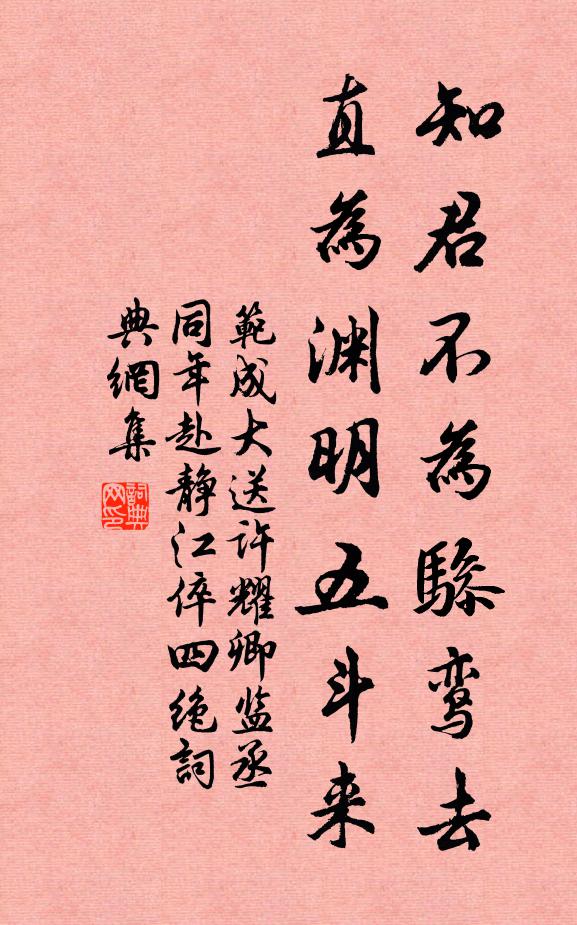 知君不為骖鸾去
直為渊明五斗来
範成大送许耀卿监丞
同年赴静江倅四绝詞
典網集
詞典
网印